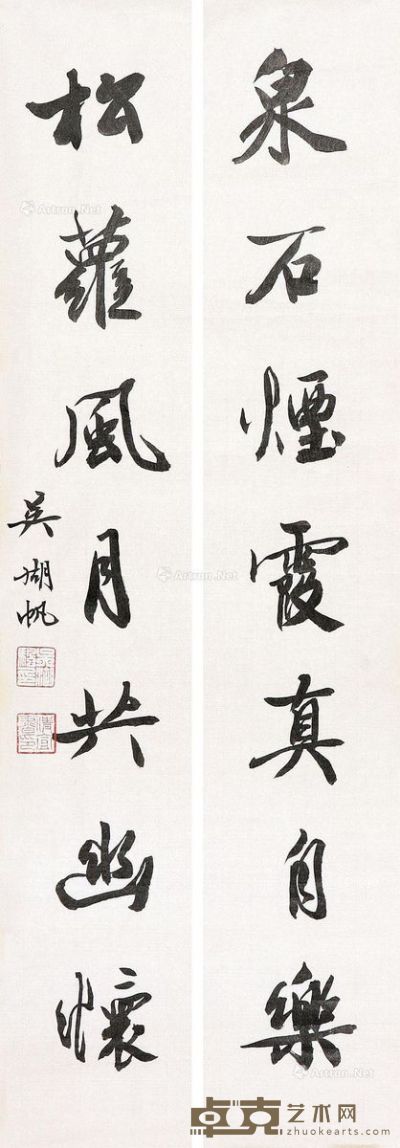 泉石煙霞真自樂
松蘿風月共幽懷
吳湖帆
Artron.Net
Artron.Net
Artron.Net
Artron.Net
卓克艺术网
zhuokearts.com